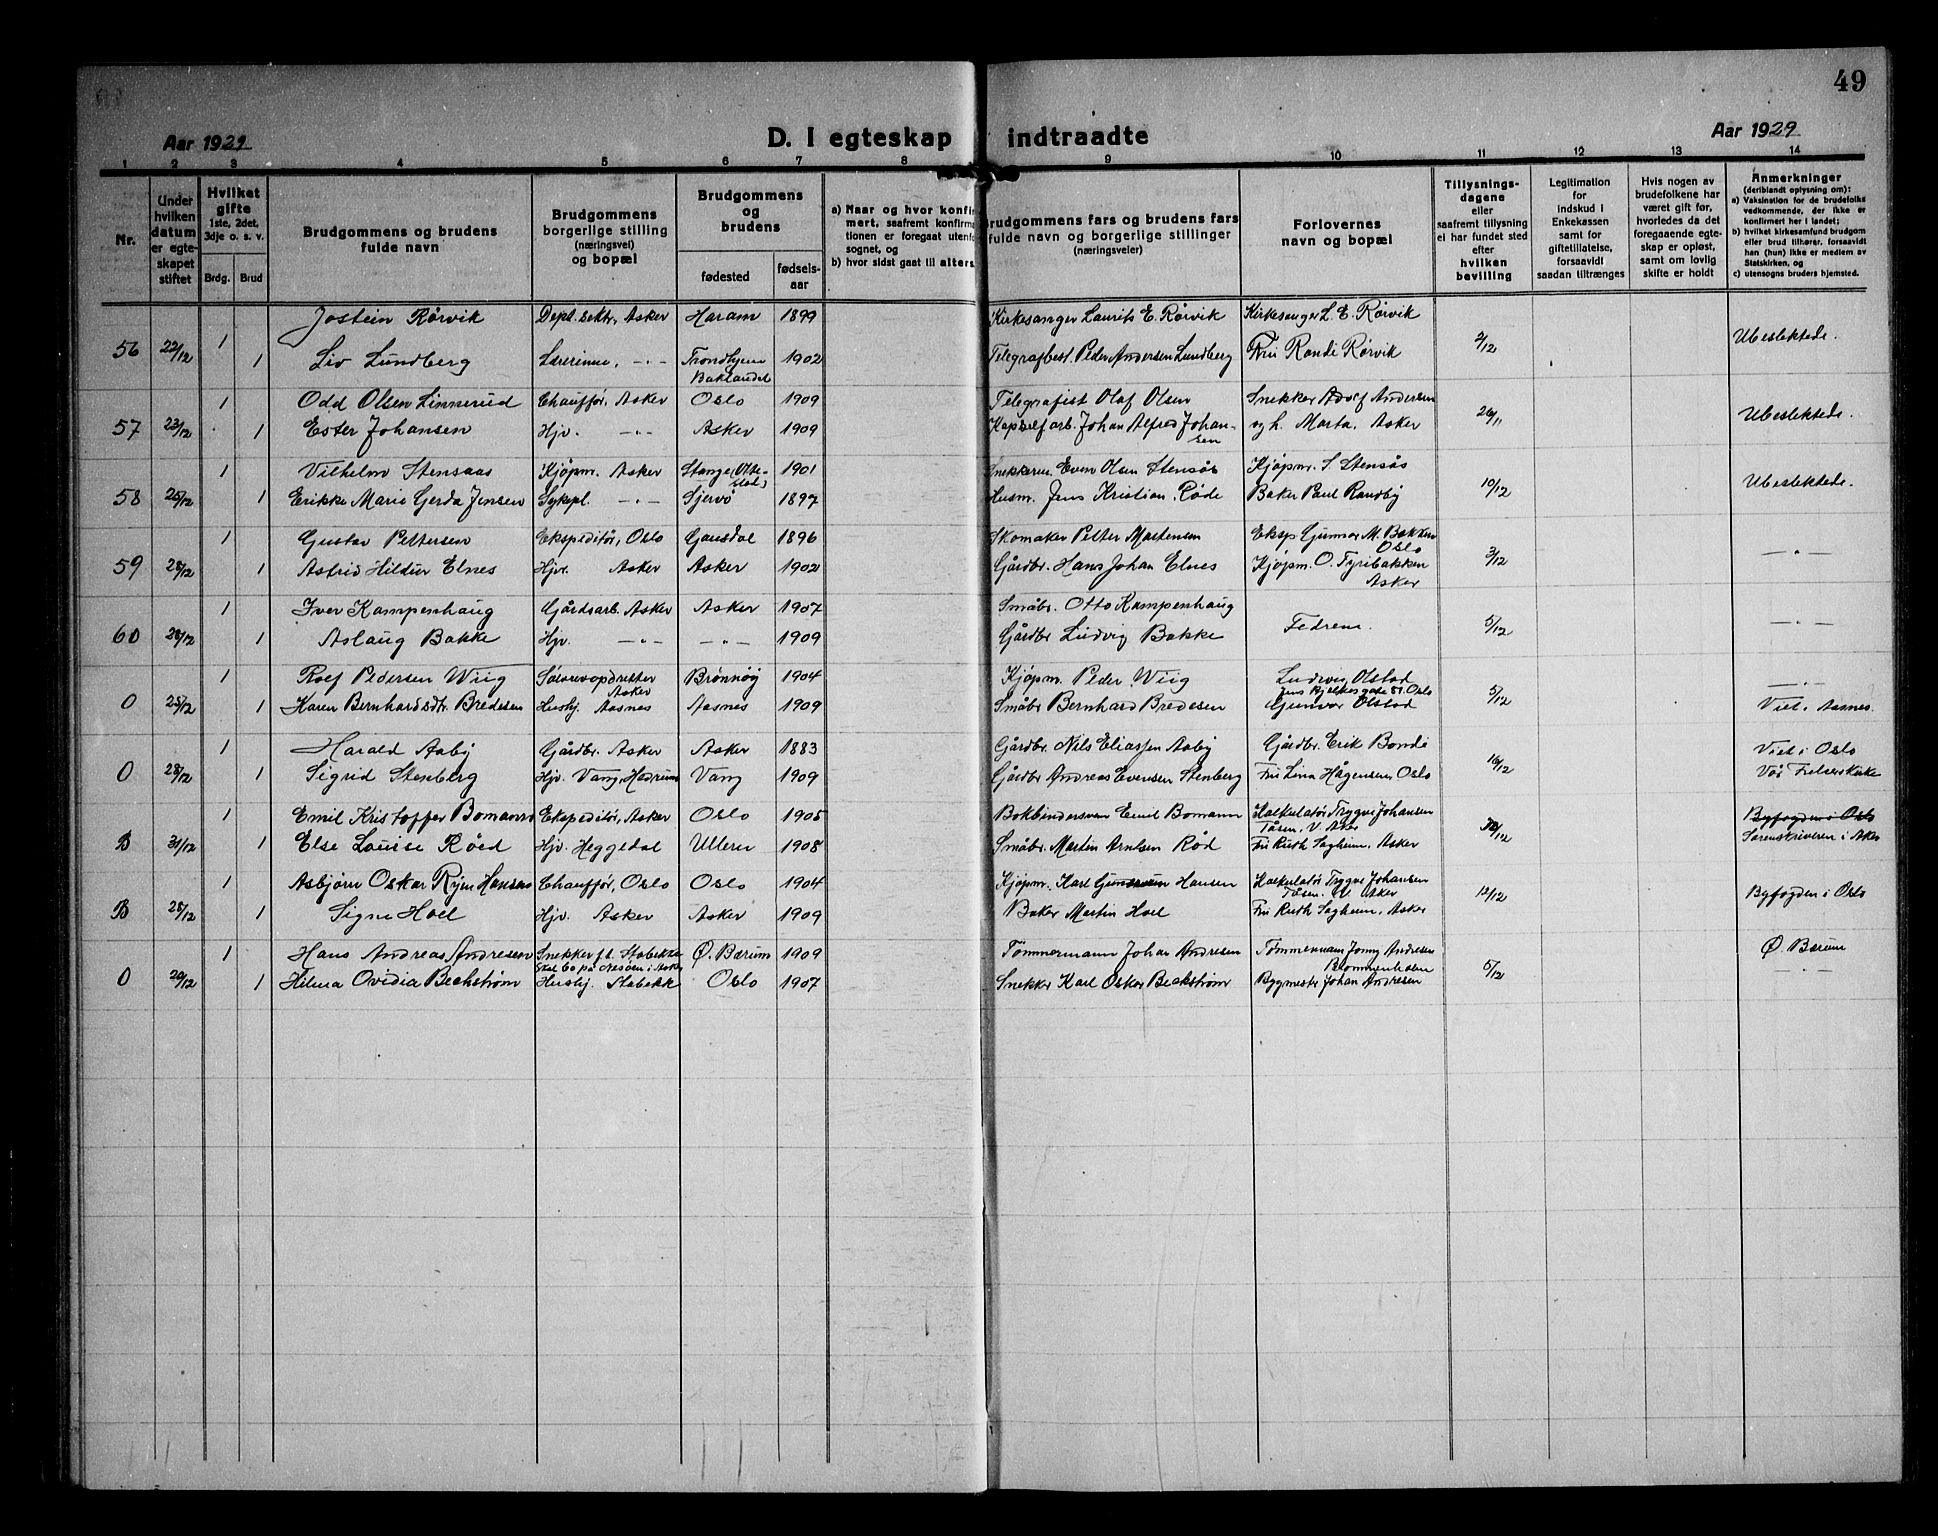 49
Aar 1929
D. I egteskap indtraadte
Aar 1929
1 2 3 4 5 6 7 8 9 10 11 12 13 14
Nr.
Under hvilken datum er egteskapet stiftet
Hvilket gifte
1ste, 2det, 3dje o. s. v.
Brdg. Brud
Brudgommens og brudens fulde navn
Brudgommens borgerlige stilling (næringsvei) og bopæl
Brudgommens og brudens
fødested
fødselsaar
a) Naar og hvor konfirmert, saafremt konfirmationen er foregaat utenfor sognet, og
b) hvor sidst gaat til alters
Brudgommens fars og brudens fars fulde navn og borgerlige stillinger (næringsveier)
Forlovernes navn og bopæl
Tillysningsdagene eller saafremt tillysning ei har fundet sted efter hvilken bevilling
Legitimation for indskud i Enkekassen samt for giftetillatelse, forsaavidt saadan tiltrænges
Hvis nogen av brudefolkene har været gift før, hvorledes da det foregaaende egteskap er opløst, samt om lovlig skifte er holdt
Anmerkninger
(deriblandt oplysning om):
a) Vaksination for de brudefolks vedkommende, der ikke er konfirmert her i landet;
b) hvilket kirkesamfund brudgom eller brud tilhører, forsaavidt han (hun) ikke er medlem av Statskirken, og
c) utensogns bruders hjemsted.
1 Jostein Rørvik Dept.sektr., Asker Haram 1899 Kirkesanger Laurits E. Rørvik Kirkesanger L. E. Rørvik
56 22/12 1 Liv Lundberg Lærerinne, -"- Trondhjem Baklandet 1902 Telegrafbest. Peder Andersen Lundberg Fru Randi Rørvik 2/12 Ubeslektede.
1 Odd Olsen Linnerud Chauffør, Asker Oslo 1909 Telegrafist Olaf Olsen Snekker Adolf Andersen
57 23/12 1 Ester Johansen Hjv. -"- Asker 1909 Kapselfarb. Johan Alfred Johansen og h. Marta, Asker 26/11 Ubeslektede.
1 Vilhelm Stensaas Kjøpm. Asker Stange (Ottestad) 1901 Snekkerm. Even Olsen Stensås Kjøpm. S. Stensås
58 25/12 1 Erikke Marie Gerda Jensen Sykpl. -"- Sjervö 1897 Husm. Jens Kristian Røde Baker Paul Randby 10/12 Ubeslektede.
1 Gustav Pettersen Ekspeditør, Oslo Gausdal 1896 Skomaker Petter Martensen Eksp Gunnar M. Bakken Oslo
59 28/12 1 Astrid Hildur Elnes Hjv. Asker Asker 1902 Gårdbr. Hans Johan Elnes Kjøpm. O. Tyribakken Asker 3/12 -"-
1 Iver Kampenhaug Gårdsarb. Asker Asker 1907 Småbr. Otto Kampenhaug
60 28/12 1 Aslaug Bakke Hjv. -"- -"- 1909 Gårdbr Ludvig Bakke Fedrene. 5/12 -"-
1 Rolf Pedersen Wiig Sølvrevopdretter Asker Brønnøy 1904 Kjøpm. Peder Wiig Ludvig Olstad
Jens Bjelkesgate 51. Oslo
0 25/12 1 Karen Bernhardsdtr. Bredesen Hushj. Aasnes Aasnes 1909 Småbr Bernhard Bredesen Gunvor Olstad 5/12 -"- Viet i Aasnes.
1 Harald Aaby Gårdbr. Asker Asker 1883 Gårdbr. Nils Eliassen Aaby Gårdbr. Erik Bonde Viet i Oslo
0 28/12 1 Sigrid Stenberg Hjv. Vang, Hedmark Vang 1909 Gårdbr Andreas Evensen Stenberg Fru Lina Hågensen, Oslo 16/12 Vår Frelsers kirke
1 Emil Kristoffer Bomann Ekspeditør, Asker Oslo 1905 Bokbindersven Emil Bomann Kalkulatør Trygve Johansen Tåsen. V. Aker Byfogden i Oslo
B 31/12 1 Else Louise Røed Hjv. Heggedal Ullern 1908 Småbr. Martin Arntsen Rød Fru Ruth Sagheim, Asker Sorenskriveren i Aker
1 Asbjørn Oskar Ryen Hansen Chauffør, Oslo Oslo 1904 Kjøpm. Karl Gundersen Hansen Kalkulatør Trygve Johansen Tåsen. V. Aker
B 28/12 1 Signe Hoel Hjv. Asker Asker 1909 Baker Martin Hoel Fru Ruth Sagheim, Asker 12/12 Byfogden i Oslo
1 Hans Andreas Andresen Snekker f.t. Stabekk Skal bo på Nesøen i Asker Ø. Bærum 1909 Tømmermann Johan Andresen Tømmermann Jonny Andresen Blommenholm Ø. Bærum
0 20/12 1 Hilma Ovidia Beckstrøm Hushj. Stabekk Oslo 1907 Snekker Karl Oskar Beckstrøm Byggmester Johan Andresen 5/12 -"-